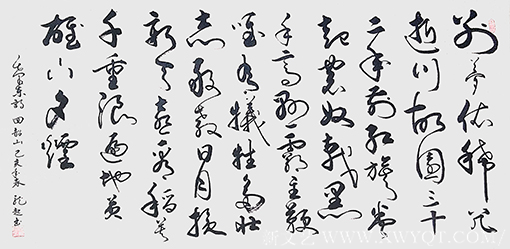 别梦依稀咒
逝川故园三十
二年前红旗卷
起农奴戟黑
手高悬霸主鞭
为有牺牲多壮
志敢教日月换
新天喜看稻菽
千重浪遍地英
雄下夕煙
毛泽东诗 回韶山 己亥年春
WWW.NWYOT.COM/